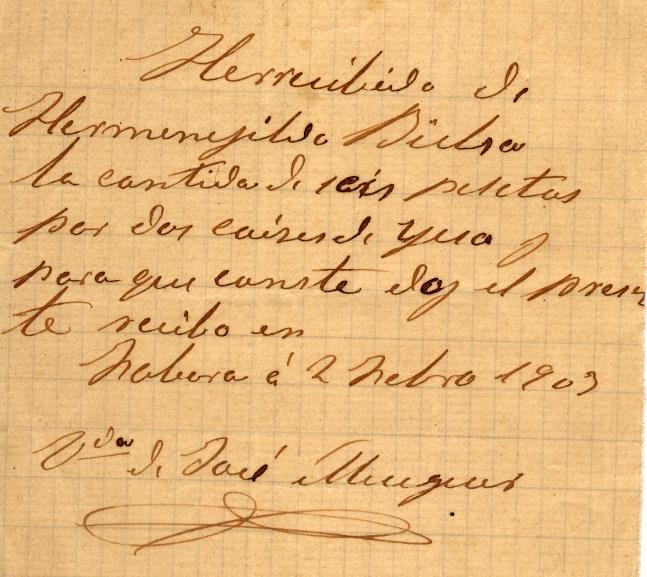 Herrecibido de
Hermenejildo Bielsa
la cantida de seis pesetas
por dos caises de yeso y
para que conste doy el presen
te recibo en
Fabara á 2 Febro 1903
Vda de José